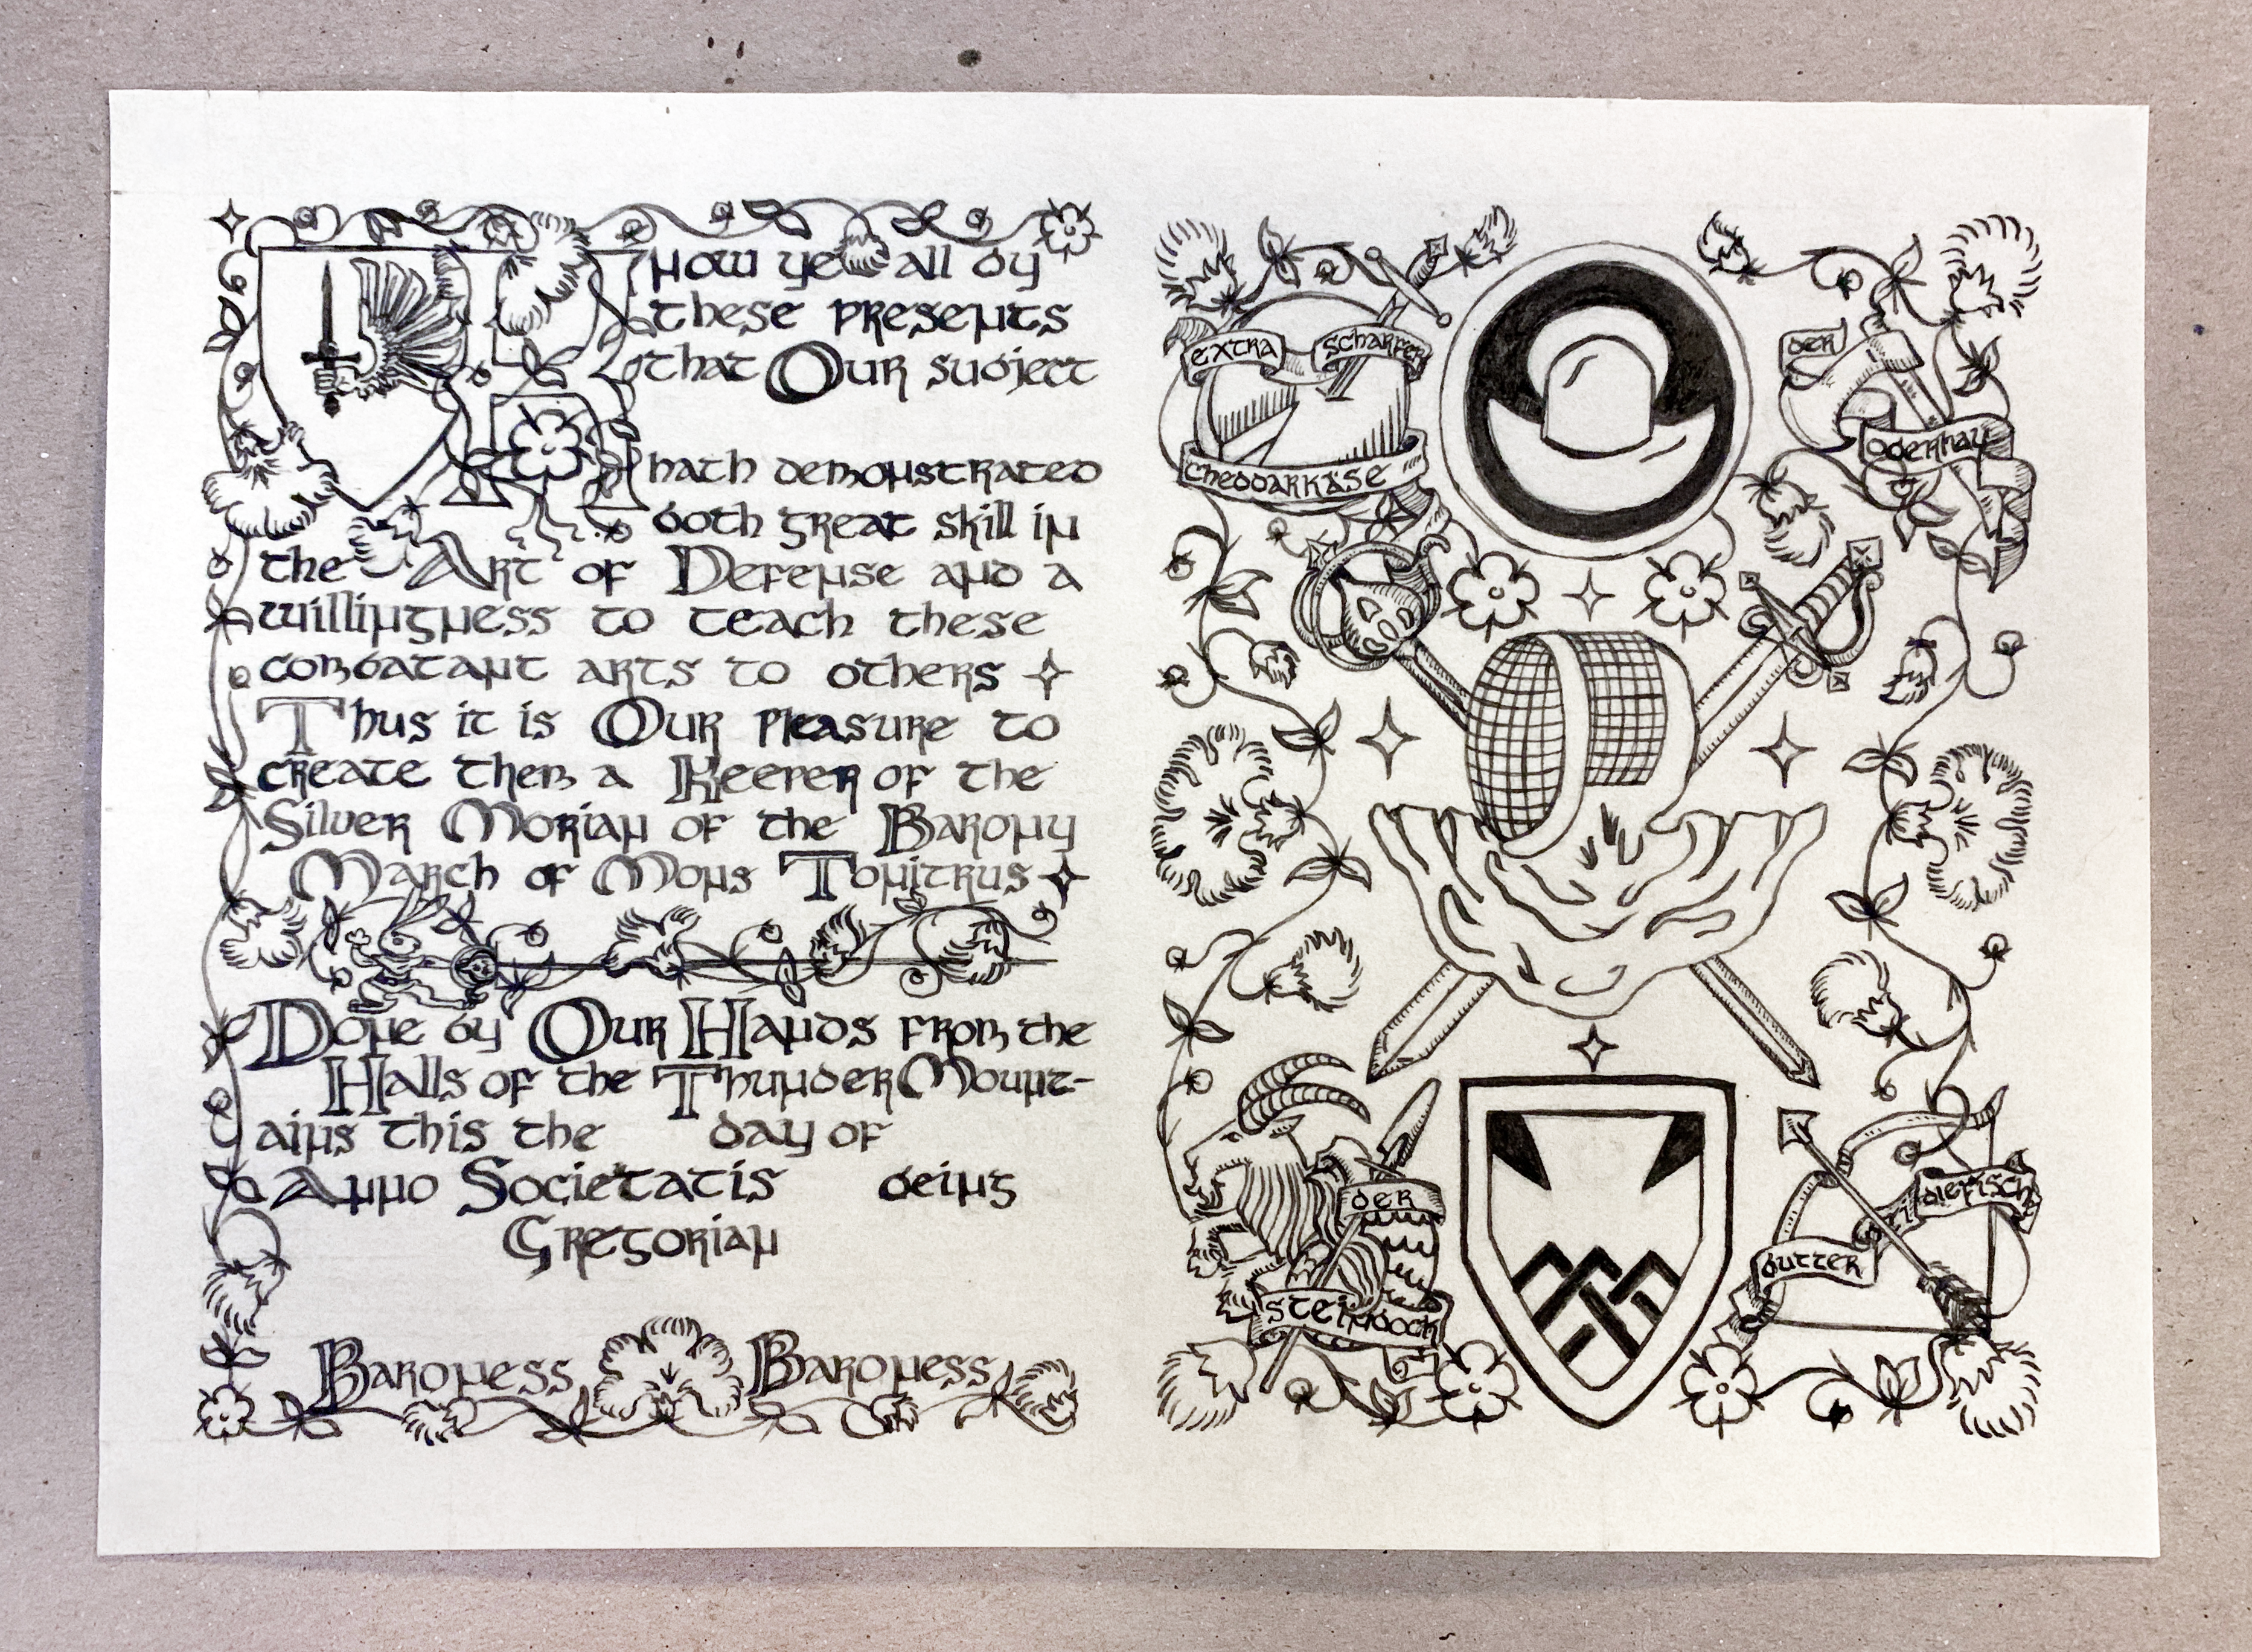 Know ye all by
these presents
that Our subject
hath demonstrated
both great skill in
the Art of Defense and a
willingness to teach these
combatant arts to others
Thus it is Our Pleasure to
create them a Keeper of the
Silver Morian of the Barony
March of Mons Tonitrus
Done by Our Hands from the
Halls of the Thunder Mount-
ains this the day of
Anno Societatis being
Gregorian
Baroness Baroness
EXTRA SCHARFER
CHEDDARKÄSE
DER
OBERHAU
DER
STEINBOCK
BUTTER
DIEFISCH